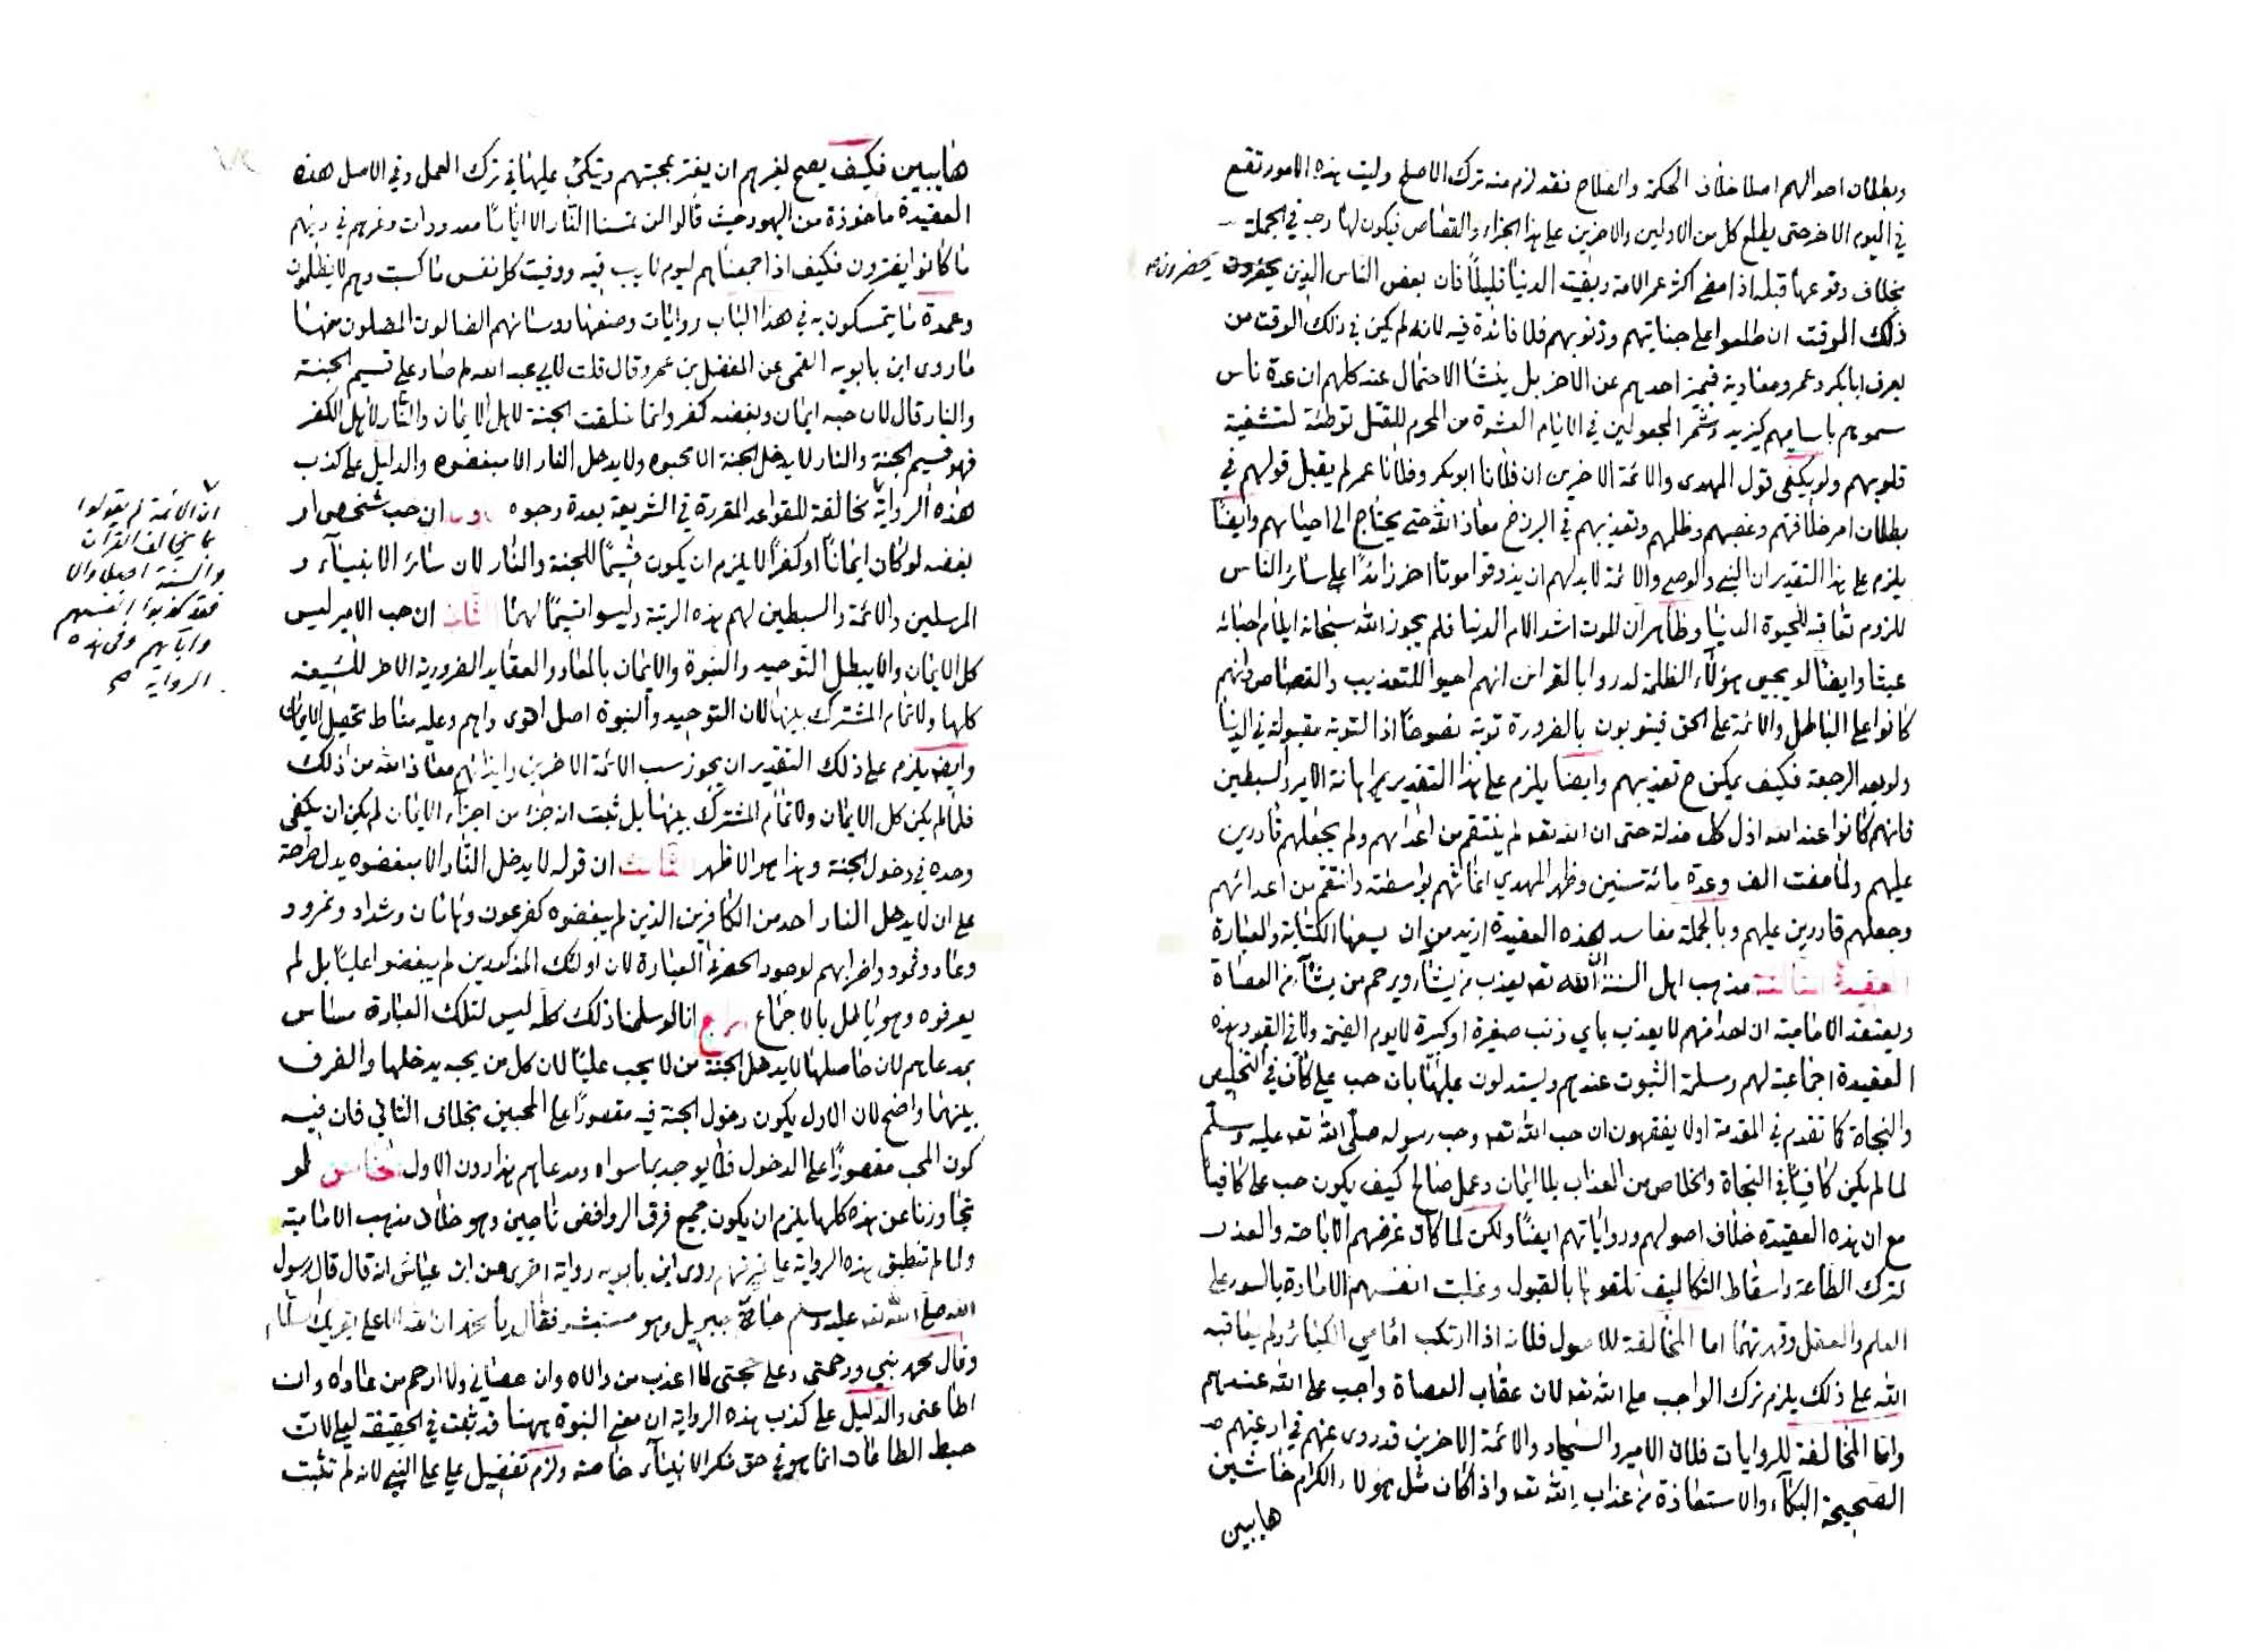 وبطلان احوالهم اصلا خلاف الحكمة والصلاح فقد لزم منه ترك الاصلح وليت هذه الامور تقع
في اليوم الاخر حتى يطلع كل من الاولين والاخرين على هذا الجزاء والقصاص فيكون لها وجه في الجملة
بخلاف وقوعها قبله اذا مضى اكثر عمر الامة وبقيت الدنيا قليلا فان بعض الناس الذين يحضرون
يحضرون صح
ذلك الوقت ان طلعوا على جناياتهم وذنوبهم فلا فائدة فيه لانه لم يكن في ذلك الوقت من
يعرف ابابكر وعمر ومعاوية فيميز احدهم عن الاخر بل ينشا الاحتمال عند كلهم ان عدة ناس
سموهم باساميهم كيزيد وشمر المجعولين في الايام العشرة من المحرم للقتل توطئة لتشفية
قلوبهم ولو يكفى قول المهدى والائمة الاخرين ان فلانا ابوبكر وفلانا عمر لم يقبل قولهم في
بطلان امر خلافتهم وغصبهم وظلمهم وتعذيبهم في البرزخ معاذ الله حتى يحتاج الى احيائهم وايضا
يلزم على هذا التقدير ان النبي والوصي والائمة لابد لهم ان يذوقوا موتا اخر زائدا على سائر الناس
للزوم تعاقبه للحيوة الدنيا وظاهر ان الموت اشد الام الدنيا فلم يجوز الله سبحانه ايلام احبائه
عبثا وايضا لو يحيى هؤلاء الظلمة لدروا بالقرائن انهم احيوا للتعذيب والقصاص وانهم
كانوا على الباطل والائمة على الحق فيتوبون بالضرورة توبة نصوحا اذ التوبة مقبولة في الدنيا
ولو بعد الرجعة فكيف يمكن ح تعذيبهم وايضا يلزم على هذا التقدير اهانة الامير والسبطين
فانهم كانوا عند الله اذل كل مذلة حتى ان الله تعه لم ينتقم من اعدائهم ولم يجعلهم قادرين
عليهم ولما مضت الف وعدة مائة سنين وظهر المهدي اغاثهم بواسطته وانتقم من اعدائهم
وجعلهم قادرين عليهم وبالجملة مفاسد هذه العقيدة ازيد من ان يسعها الكتابة والعبارة
العقيدة الثالثة مذهب اهل السنة ان الله تعه يعذب من يشاء ويرحم من يشاء من العصاة
ويعتقد الامامية ان احدا منهم لا يعذب باي ذنب صغيرة او كبيرة لا يوم القيمة ولا في القبور وهذه
العقيدة اجماعية لهم ومسلمة الثبوت عندهم ويستدلون عليها بان حب علي كاف في التخليص
والنجاة كما تقدم في المقدمة اولا يفقهون ان حب الله تعه وحب رسوله صلى الله تعه عليه وسلم
لما لم يكن كافيا في النجاة والخلاص من العذاب بلا ايمان وعمل صالح كيف يكون حب علي كافيا
مع ان هذه العقيدة خلاف اصولهم ورواياتهم ايضا ولكن لما كان غرضهم الاباحة والعذر
لترك الطاعة واسقاط التكاليف تلقوها بالقبول وغلبت انفسهم الامارة بالسوء على
العلم والعقل وقهرتهما اما المخالفة للاصول فلانه اذا ارتكب امامي الكبائر ولم يعاقبه
الله على ذلك يلزم ترك الواجب على الله تعه لان عقاب العصاة واجب على الله عندهم
واما المخالفة للروايات فلان الامير والسجاد والائمة الاخرين قد روى عنهم في ادعيتهم
الصحيحة البكاء والاستعاذة من عذاب الله تعه واذا كان مثل هؤلاء الكرام خاشين
هايبين
هايبين فكيف يصح لغيرهم ان يغتر بمحبتهم ويتكئ عليها في ترك العمل وفي الاصل هذه
العقيدة ماخوذة من اليهود حيث قالوا لن تمسنا النار الا اياما معدودات وغرهم في دينهم
ما كانوا يفترون فكيف اذا جمعناهم ليوم لا ريب فيه ووفيت كل نفس ما كسبت وهم لا يظلمون
وعمدة ما يتمسكون به في هذا الباب روايات وضعها رؤسائهم الضالون المضلون منها
ما روى ابن بابويه القمي عن المفضل بن عمرو قال قلت لابي عبد الله لم صار علي قسيم الجنة
والنار قال لان حبه ايمان وبغضه كفر وانما خلقت الجنة لاهل الايمان والنار لاهل الكفر
فهو قسيم الجنة والنار لا يدخل الجنة الا محبوه ولا يدخل النار الا مبغضوه والدليل على كذب
هذه الرواية مخالفة للقواعد المقررة في الشريعة بعدة وجوه ان حب شخص او
ان الائمة لم يقولوا
بما يخالف القرآن
والسنة اصلا والا
فقد كذبوا انفسهم
وآبائهم وفي هذه
الرواية صح
بغضه لو كان ايمانا او كفرا لا يلزم ان يكون قسيما للجنة والنار لان سائر الانبياء و
المرسلين والائمة والسبطين لهم هذه الرتبة وليسوا قسيما لهما ان حب الامير ليس
كل الايمان والا يبطل التوحيد والنبوة والايمان بالمعاد والعقايد الضرورية الاخر للشيعة
كلها ولا تمام المشترك بينها لان التوحيد والنبوة اصل اقوى واهم وعليه مناط تحصيل الايمان
وايضا يلزم على ذلك التقدير ان يجوز سب الائمة الاخرين وايذائهم معاذ الله من ذلك
فلما لم يكن كل الايمان ولا تمام المشترك بينها بل ثبت انه جزء من اجزاء الايمان لم يكن ان يكفى
وحده في دخول الجنة وهذا هو الاظهر الثالث ان قوله لا يدخل النار الا مبغضوه يدل صراحة
على ان لا يدخل النار احد من الكافرين الذين لم يبغضوه كفرعون وهامان وشداد ونمرود
وعاد وثمود واضرابهم لوجود الحصر في العبارة لان اولئك المذكورين لم يبغضوا عليا بل لم
يعرفوه وهو باطل بالاجماع الرابع انا لو سلمنا ذلك كله ليس لتلك العبارة مساس
بمدعاهم لان حاصلها لا يدخل الجنة من لا يحب عليا لان كل من يحبه يدخلها والفرق
بينهما واضح لان الاول يكون دخول الجنة فيه مقصورا على المحبين بخلاف الثاني فان فيه
كون المحب مقصورا على الدخول فلا يوجد بما سواه ومدعاهم هذا دون الاول الخامس لو
تجاوزنا عن هذه كلها يلزم ان يكون جميع فرق الروافض ناجين وهو خلاف مذهب الامامية
ولما لم تنطبق هذه الرواية على غرضهم روى ابن بابويه رواية اخرى عن ابن عباس انه قال قال رسول
الله صلى الله تعه عليه وسلم جائني جبريل وهو مستبشر فقال يا محمد ان الله الاعلى يقرئك السلام
وقال محمد نبيي ورحمتي وعلي حجتي لا اعذب من والاه وان عصاني ولا ارحم من عاداه وان
اطاعني والدليل على كذب هذه الرواية ان معنى النبوة ههنا قد ثبت في الحقيقة لعلي لان
حبط الطاعات انما هو في حق منكر الانبياء خاصة ولزم تفضيل علي على النبي لانه لم تثبت